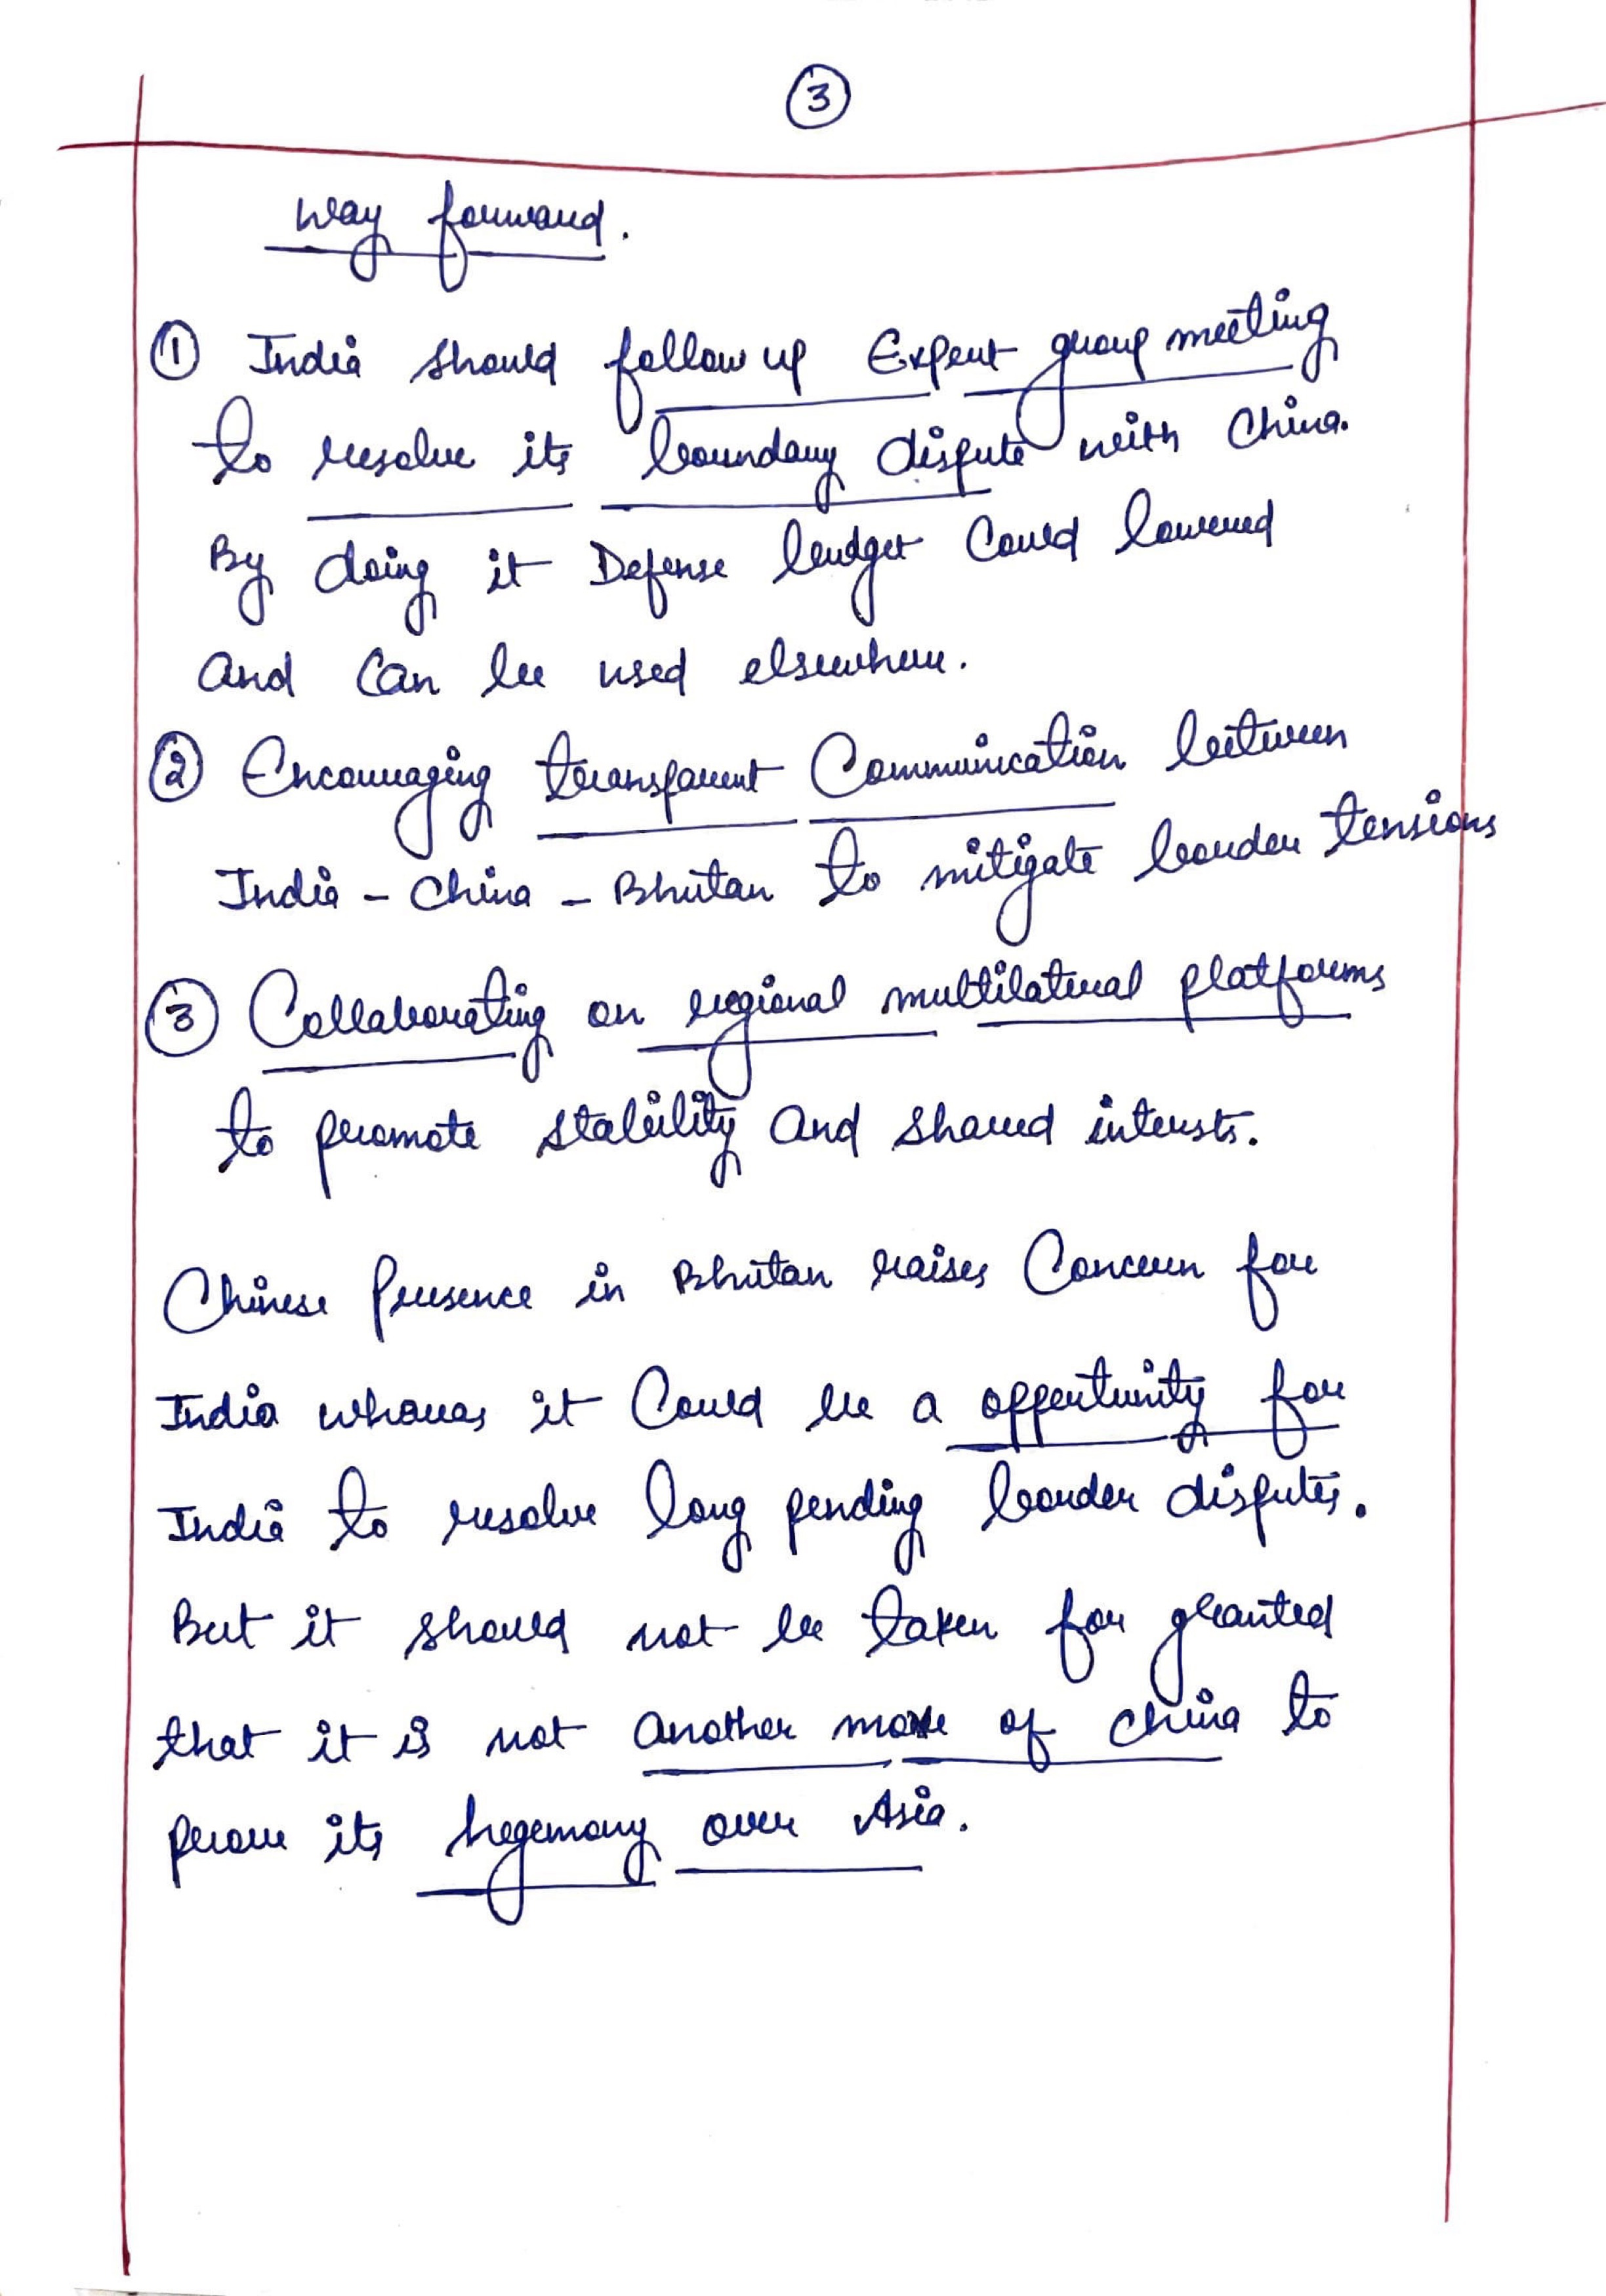 3
way forward.
① India should follow up Expert group meeting
to resolve its boundary dispute with China.
By doing it Defense budget Could lowered
and Can be used elsewhere.
② Encouraging transparent Communication between
India - China - Bhutan to mitigate border tensions
③ Collaborating on regional multilateral platforms
to promote stability and shared interests.
Chinese Presence in Bhutan raises Concern for
India whereas it Could be a oppertunity for
India to resolve long pending border disputes.
But it should not be taken for granted
that it is not another move of China to
prove its hegemony over Asia.